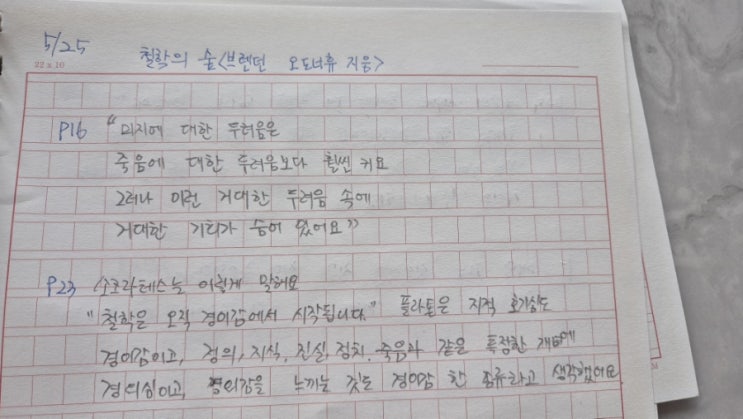 5/25 철학의 숲<브렌던 오도너휴 지음>
22 x 10
P16 "미지에 대한 두려움은
죽음에 대한 두려움보다 훨씬 커요
그러나 이런 거대한 두려움 속에
거대한 기회가 숨어 있어요"
P23 소크라테스는 이렇게 말해요
"철학은 오직 경이감에서 시작됩니다." 플라톤은 지적 호기심도
경이감이고, 정의, 지식, 진실, 정치, 죽음과 같은 특정한 개념에
경이심이고, 경이감을 느끼는 것도 경이감 한 종류라고 생각했어요